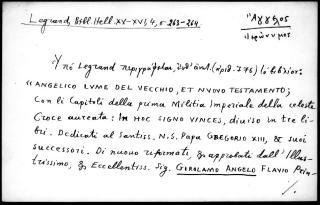 Legrand, Bibl. Hell. XV-XVI, 4, σ. 263-264.
Ἄγγελος
Ἱερώνυμος
Ὑπὸ Legrand περιγράφεται, ἔνθ' ἀνωτ. (ἀριθ. 796) τὸ βιβλίον:
"ANGELICO LVME DEL VECCHIO, ET NUOVO TESTAMENTO;
Con li Capitoli della prima Militia Imperiale della celeste
Croce aureata: IN HOC SIGNO VINCES, diuiso in tre li-
bri. Dedicati al Santiss. N.S. Papa GREGORIO XIII, & suoi
successori. Di nuovo riformati, & approbate dall' Illus-
trissimo, & Eccellentiss. Sig. GIROLAMO ANGELO FLAVIO Prin-